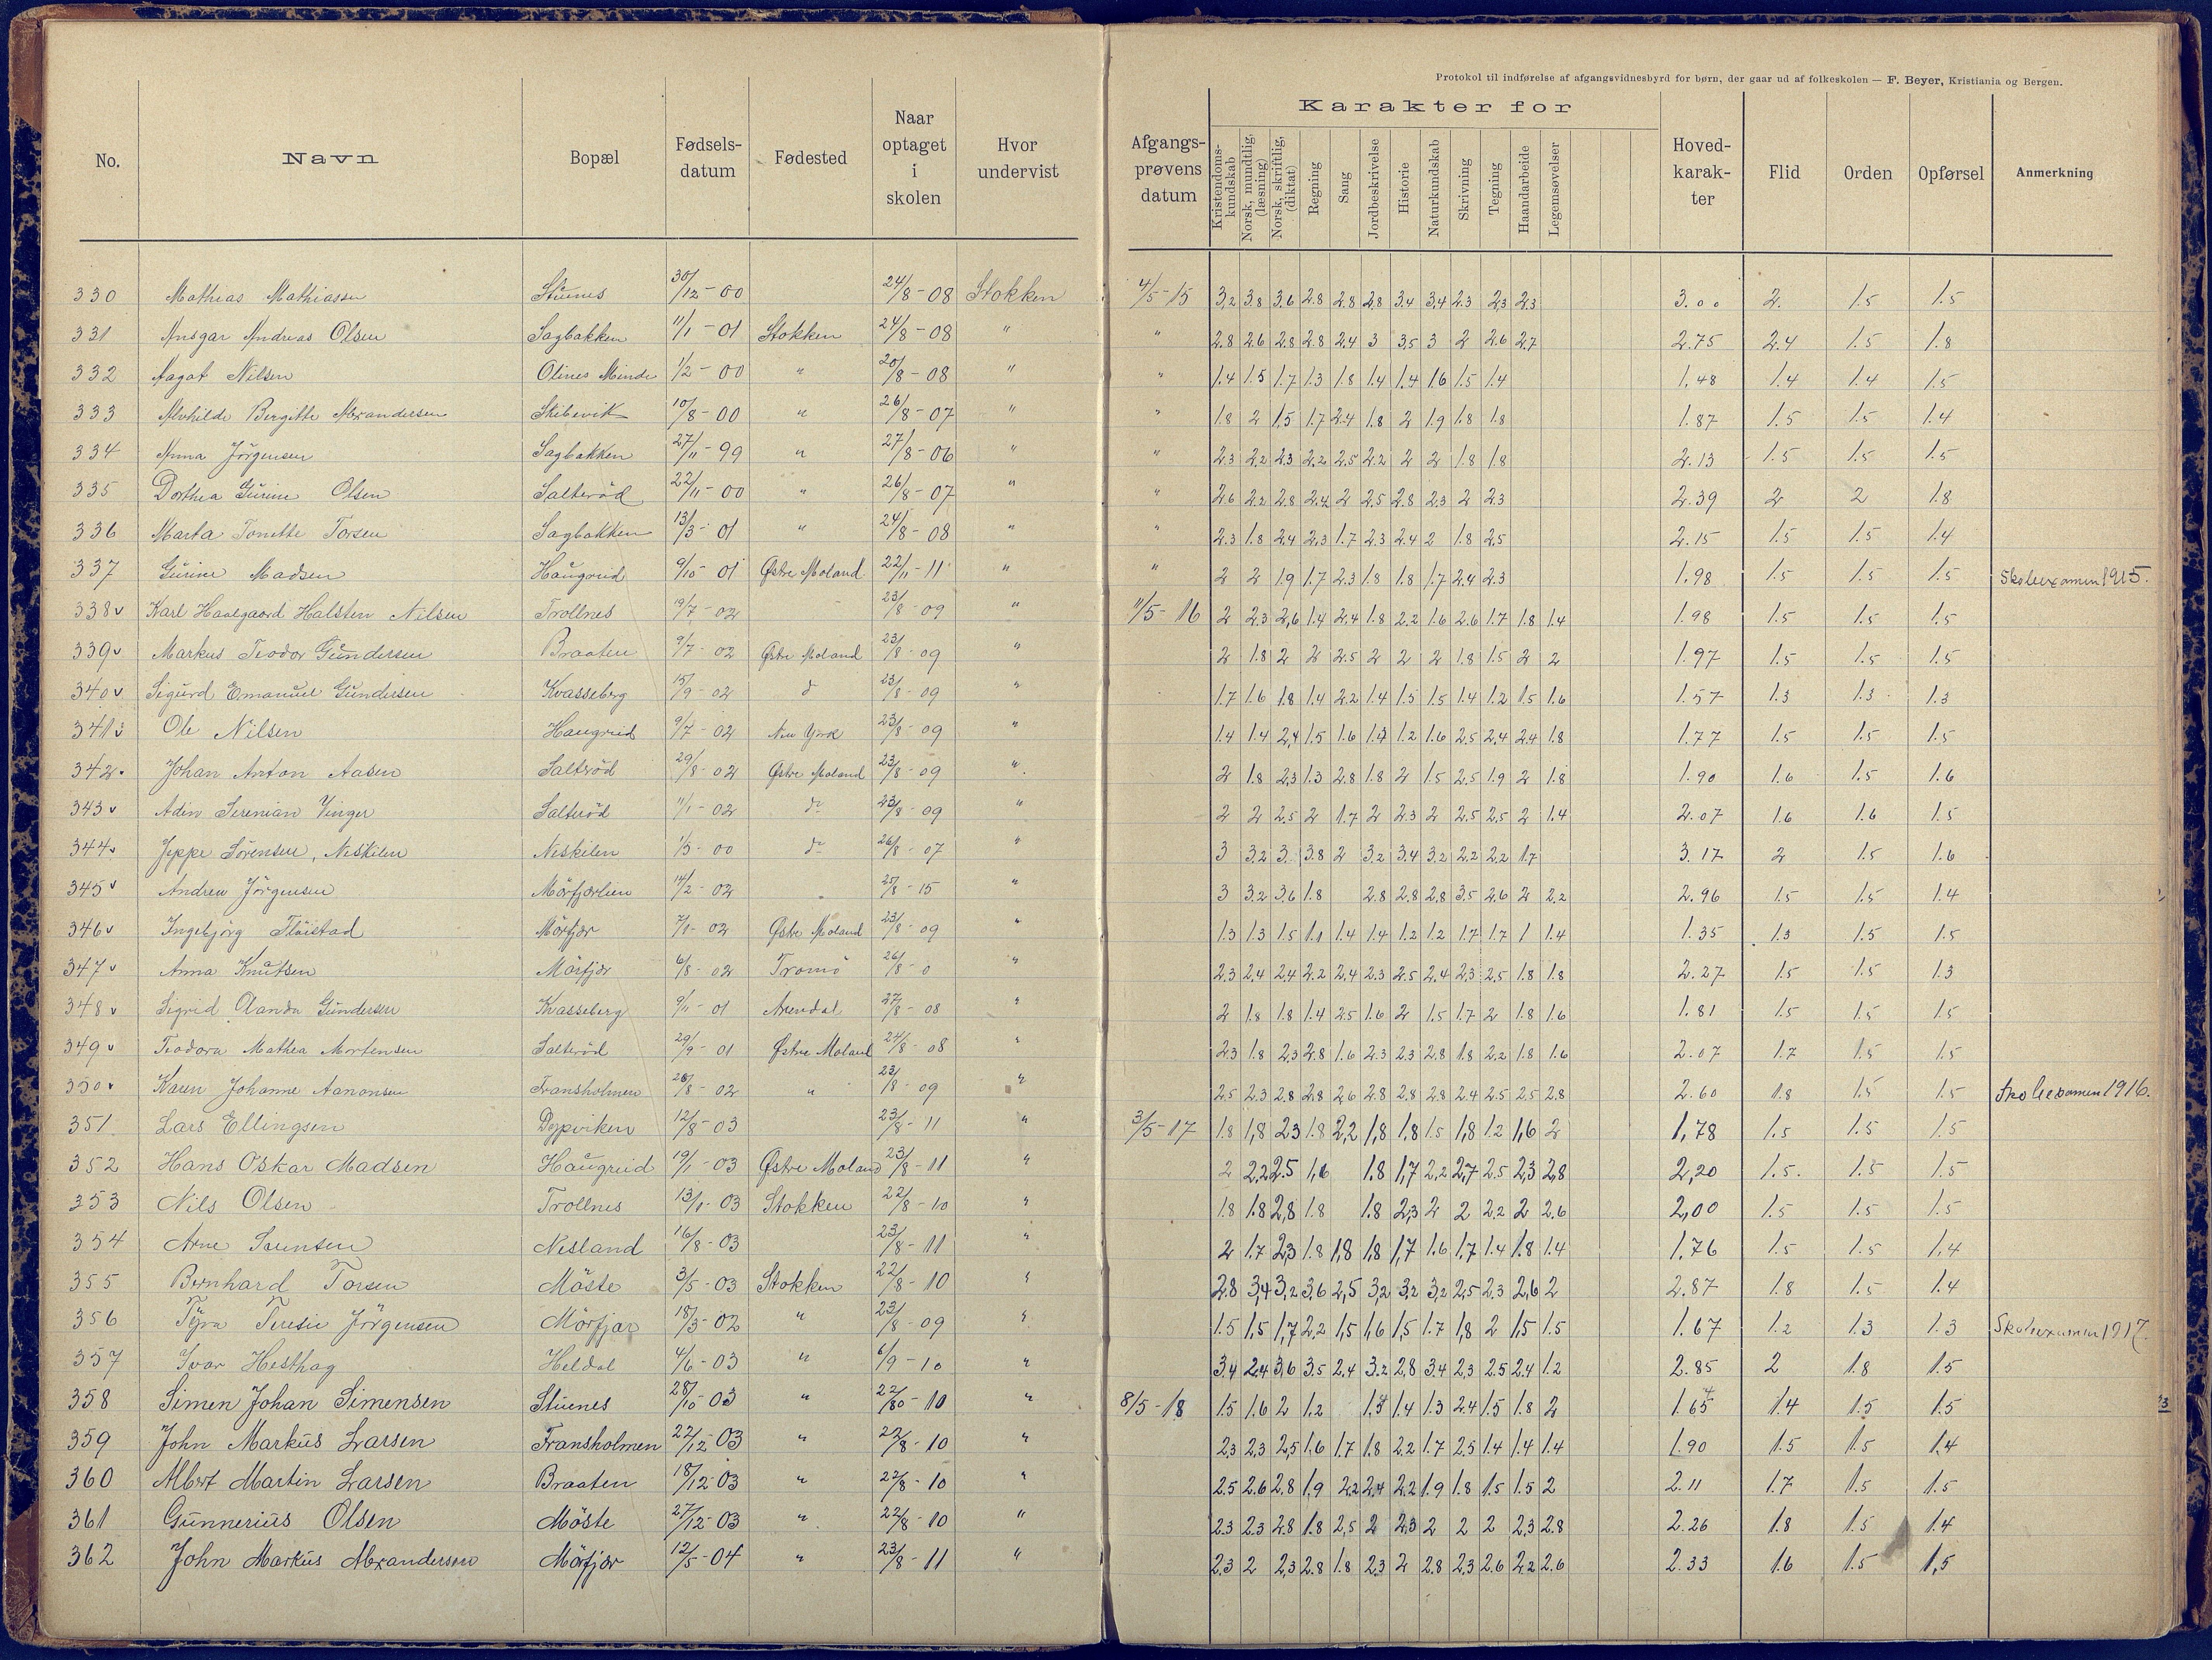 Protokol til indførelse af afgangsvidnesbyrd for børn, der gaar ud af folkeskolen — F. Beyer, Kristiania og Bergen.
No. Navn Bopæl Fødsels-datum Fødested Naar optaget i skolen Hvor undervist Afgangs-prøvens datum Karakter for Hoved-karak-ter Flid Orden Opførsel Anmerkning
Kristendoms-kundskab Norsk, mundtlig, (læsning) Norsk, skriftlig, (diktat) Regning Sang Jordbeskrivelse Historie Naturkundskab Skrivning Tegning Haandarbeide Legemsøvelser
330 Mathias Mathiassen Stuenes 30/12-00 24/8-08 Stokken 4/5-15 3,2 3.8 3.6 2.8 2.8 2.8 3.4 3.4 2.3 2.3 2.3 3.00 2. 1.5 1.5
331 Ansgar Andreas Olsen Sagbakken 11/1-01 Stokken 24/8-08 " " 2.8 2.6 2.8 2.8 2.4 3 3.5 3 2 2.6 2.7 2.75 2.4 1.5 1.8
332 Aagot Nilsen Olines Minde 1/2-00 " 20/8-08 " " 1.4 1.5 1.7 1.3 1.8 1.4 1.4 1.6 1.5 1.4 1.48 1.4 1.4 1.5
333 Alvhilde Bergitte Alexandersen Skibevik 10/8-00 " 26/8-07 " " 1.8 2 1.5 1.7 2.4 1.8 2 1.9 1.8 1.8 1.87 1.5 1.5 1.4
334 Anna Jörgensen Sagbakken 27/11-99 " 27/8-06 " " 2.3 2.2 2.3 2.2 2.5 2.2 2 2 1.8 1.8 2.13 1.5 1.5 1.5
335 Dorthea Gurine Olsen Salteröd 22/11-00 " 26/8-07 " " 2.6 2.2 2.8 2.4 2 2.5 2.8 2.3 2 2.3 2.39 2 2 1.8
336 Marta Tonette Torsen Sagbakken 13/3-01 " 24/8-08 " " 2.3 1.8 2.4 2.3 1.7 2.3 2.4 2 1.8 2.5 2.15 1.5 1.5 1.4
337 Gurine Madsen Haugerud 9/10-01 Østre Moland 22/11-11 " " 2 2 1.9 1.7 2.3 1.8 1.8 1.7 2.4 2.3 1.98 1.5 1.5 1.5 Skoleexamen 1915.
338 v Karl Haalgaard Halsten Nilsen Trollnes 19/7-02 23/8-09 " 11/5-16 2 2.3 2,6 1.4 2.4 1.8 2.2 1.6 2.6 1.7 1.8 1.4 1.98 1.5 1.5 1.5
339 v Markus Teodor Gundersen Braaten 9/7-02 Østre Moland 23/8-09 " 2 1.8 2 2 2.5 2 2 2 1.8 1.5 2 2 1.97 1.5 1.5 1.5
340 v Sigurd Emanuel Gundersen Kvasseberg 15/9-02 d 23/8-09 " 1.7 1.6 1.8 1.4 2.2 1.4 1.5 1.5 1.4 1.2 1.5 1.6 1.57 1.3 1.3 1.3
341 v Ole Nilsen Haugerud 9/7-02 New York 23/8-09 " 1.4 1.4 2,4 1.5 1.6 1.3 1.2 1.6 2.5 2,4 2.4 1.8 1.77 1.5 1.5 1.5
342. Johan Anton Aasen Salteröd 29/8-02 Østre Moland 23/8-09 " 2 1.8 2.3 1.3 2.8 1.8 2 1.5 2.5 1.9 2 1.8 1.90 1.6 1.5 1.6
343 v Adin Serenian Vinger Salteröd 11/1-02 do 23/8-09 " 2 2 2.5 2 1.7 2 2.3 2 2.5 2.5 2 1.4 2.07 1.6 1.6 1.5
344 v Jeppe Sörensen, Neskilen Neskilen 1/5-00 do 26/8-07 " 3 3.2 3. 3.8 2 3.2 3.4 3.2 2.2 2.2 1.7 3.17 2 1.5 1.6
345 v Andrew Jörgensen Mörfjærlien 14/2-02 25/8-15 " 3 3.2 3.6 1.8 2.8 2.8 2.8 3.5 2.6 2 2.2 2.96 1.5 1.5 1.4
346 v Ingebjörg Flöistad Mörfjær 7/1-02 Østre Moland 23/8-09 " 1.3 1.3 1.5 1.1 1.4 1.4 1.2 1.2 1.7 1.7 1 1.4 1.35 1.3 1.5 1.5
347 v Anna Knutsen Mörfjær 6/8-02 Tromö 26/8-0 " 2.3 2.4 2.4 2.2 2.4 2.3 2.5 2.4 2.3 2.5 1.8 1.8 2.27 1.5 1.5 1.3
348 v Sigrid Olanda Gundersen Kvasseberg 9/11-01 Arendal 27/8-08 " 2 1.8 1.8 1.4 2.5 1.6 2 1.5 1.7 2 1.8 1.6 1.81 1.5 1.5 1.5
349 v Teodora Mathea Mortensen Salteröd 29/9-01 Østre Moland 24/8-08 " 2.3 1.8 2.3 2.8 1.6 2.3 2.3 2.8 1.8 2.2 1.8 1.6 2.07 1.7 1.5 1.5
350 v Karen Johanne Aanonsen Fransholmen 26/8-02 " 23/8-09 " 2.5 2.3 2.8 2.8 2.6 2.8 2.8 2.8 2.4 2.5 2.5 2.8 2.60 1.8 1.5 1.5 Skoleexamen 1916.
351. Lars Ellingsen Dypviken 12/8-03 23/8-11 " 3/5-17 1.8 1,8 2.3 1.8 2,2 1,8 1.8 1.5 1,8 1.2 1,6 2 1,78 1.5 1.5 1.5
352 Hans Oskar Madsen Haugerud 19/1-03 Østre Moland 23/8-11 " 2 2,2 2.5 1,6 1.8 1,7 2,2 2,7 2.5 2,3 2,8 2,20 1.5. 1.5 1.5
353 Nils Olsen Trollnes 13/1-03 Stokken 22/8-10 " 1.8 1.8 2,8 1.8 1.8 2,3 2 2 2.2 2 2.6 2,00 1.5 1.5 1.5
354 Arne Sörensen Nesland 16/8-03 23/8-11 " 2 1.7 2,3 1.8 1,8 1,8 1,7 1.6 1.7 1.4 1.8 1.4 1.76 1.5 1.5 1,4
355 Bernhard Torsen Möste 3/5-03 Stokken 22/8-10 " 2.8 3,4 3,2 3.6 2,5 3,2 3,2 3,2 2,5 2.3 2,6 2 2.87 1.8 1.5 1.4
356 Tyra Teresie Jörgensen Mörfjær 18/3-02 " 23/8-09 " 1.5 1,5 1,7 2,2 1,5 1,6 1,5 1.7 1,8 2 1,5 1.5 1.67 1.2 1.3 1.3 Skoleexamen 1917.
357 Ivar Hesthag Heldal 4/6-03 " 6/9-10 " 3.4 2.4 3,6 3.5 2.4 3.2 2,8 3.4 2,3 2.5 2.4 1.2 2.85 2 1.8 1.5
358 Simen Johan Simensen Stuenes 28/10-03 " 22/80-10 " 8/5-18 1.5 1.6 2 1.2 1.4 1.3 2.4 1.5 1.8 2 1.65 1.4 1.5 1.5
359 John Markus Larsen Fransholmen 22/12-03 " 22/8-10 " 2.3 2.3 2,5 1.6 1.7 1.8 2.2 1.7 2.5 1.4 1.4 1.4 1.90 1.5 1.5 1.4
360 Albert Martin Larsen Braaten 18/12-03 " 22/8-10 " 2.5 2.6 2.8 1,9 2,2 2,4 2.2 1.9 1.8 1.5 1.5 2 2.11 1.7 1.5 1.5
361 Gunnerius Olsen Möste 27/12-03 " 22/8-10 " 2.3 2.3 2.8 1.8 2,5 2 2,3 2 2 2 2,3 2.8 2.26 1.8 1.5 1.4
362 John Markus Alexandersen Mörfjær 12/5-04 " 23/8-11 " 2.3 2 2,3 2.8 1.8 2,3 2 2.8 2.3 2.6 2.2 2.6 2.33 1.6 1.5 1,5